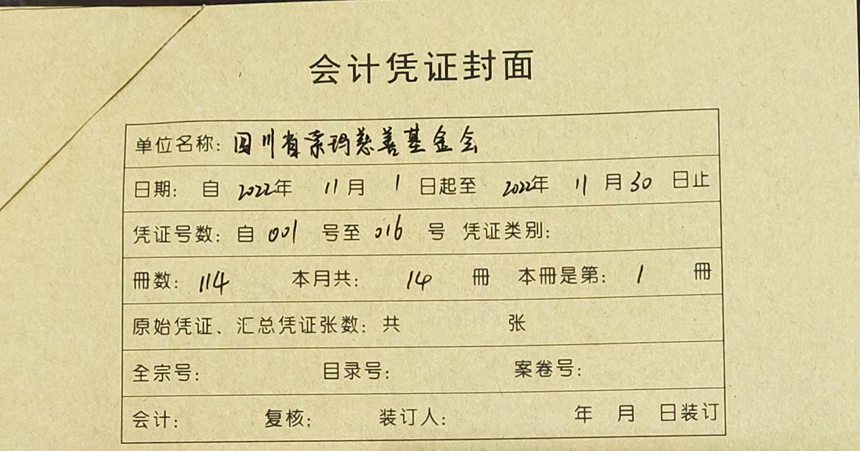 会计凭证封面
单位名称：四川省索玛慈善基金会
日期：自 2022年 11月 1日起至 2022年 11月30日止
凭证号数：自001号至016号 凭证类别：
冊数：114 本月共：14冊 本冊是第：1冊
原始凭证、汇总凭证张数：共 张
全宗号： 目录号： 案卷号：
会计： 复核； 装订人： 年 月 日装订